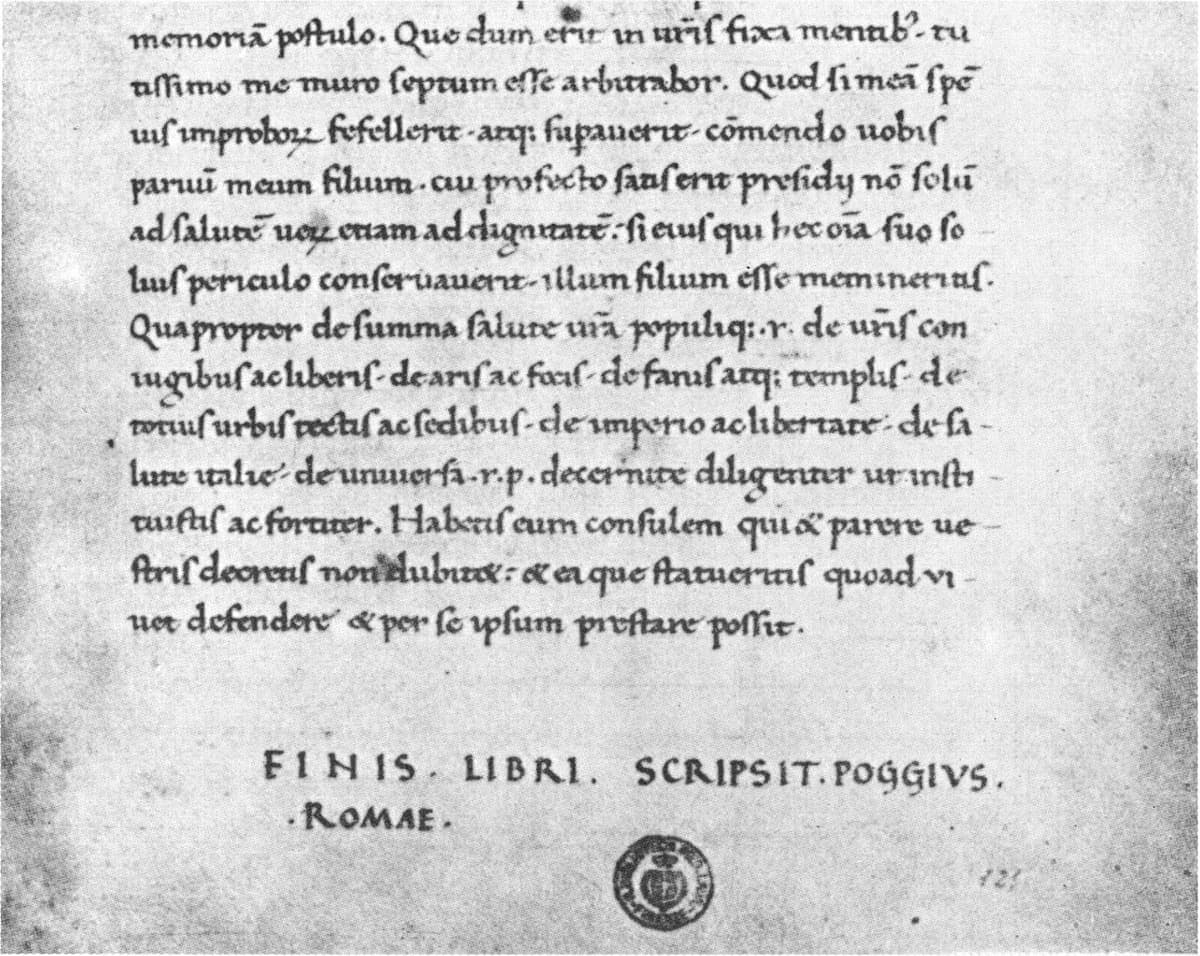 memoriā postulo. Que dum erit in ur̄is fixa mentibꝰ. tu
tissimo me muro septum esse arbitrabor. Quod si meā spē
uis improboꝝ fefellerit. atq; suꝑauerit. cōmendo uobis
paruū meum filium. cui profecto satis erit presidij nō solū
ad salutē ueꝝ etiam ad dignitatē. si eius qui hec oīa suo so
lius periculo conseruauerit. illum filium esse memineritis.
Quapropter de summa salute ur̄a populiq;.r. de ur̄is con
iugibus ac liberis. de aris ac focis. de fanis atq; templis. de
totius urbis tectis ac sedibus. de imperio ac libertate. de sa-
lute italie. de uniuersa.r.p. decernite diligenter ut insti-
tuistis ac fortiter. Habetis eum consulem qui & parere ue-
stris decretis non dubitet: & ea que statueritis quoad vi-
uet defendere & per se ipsum prestare possit.
FINIS. LIBRI. SCRIPSIT. POGGIVS.
.ROMAE.
121